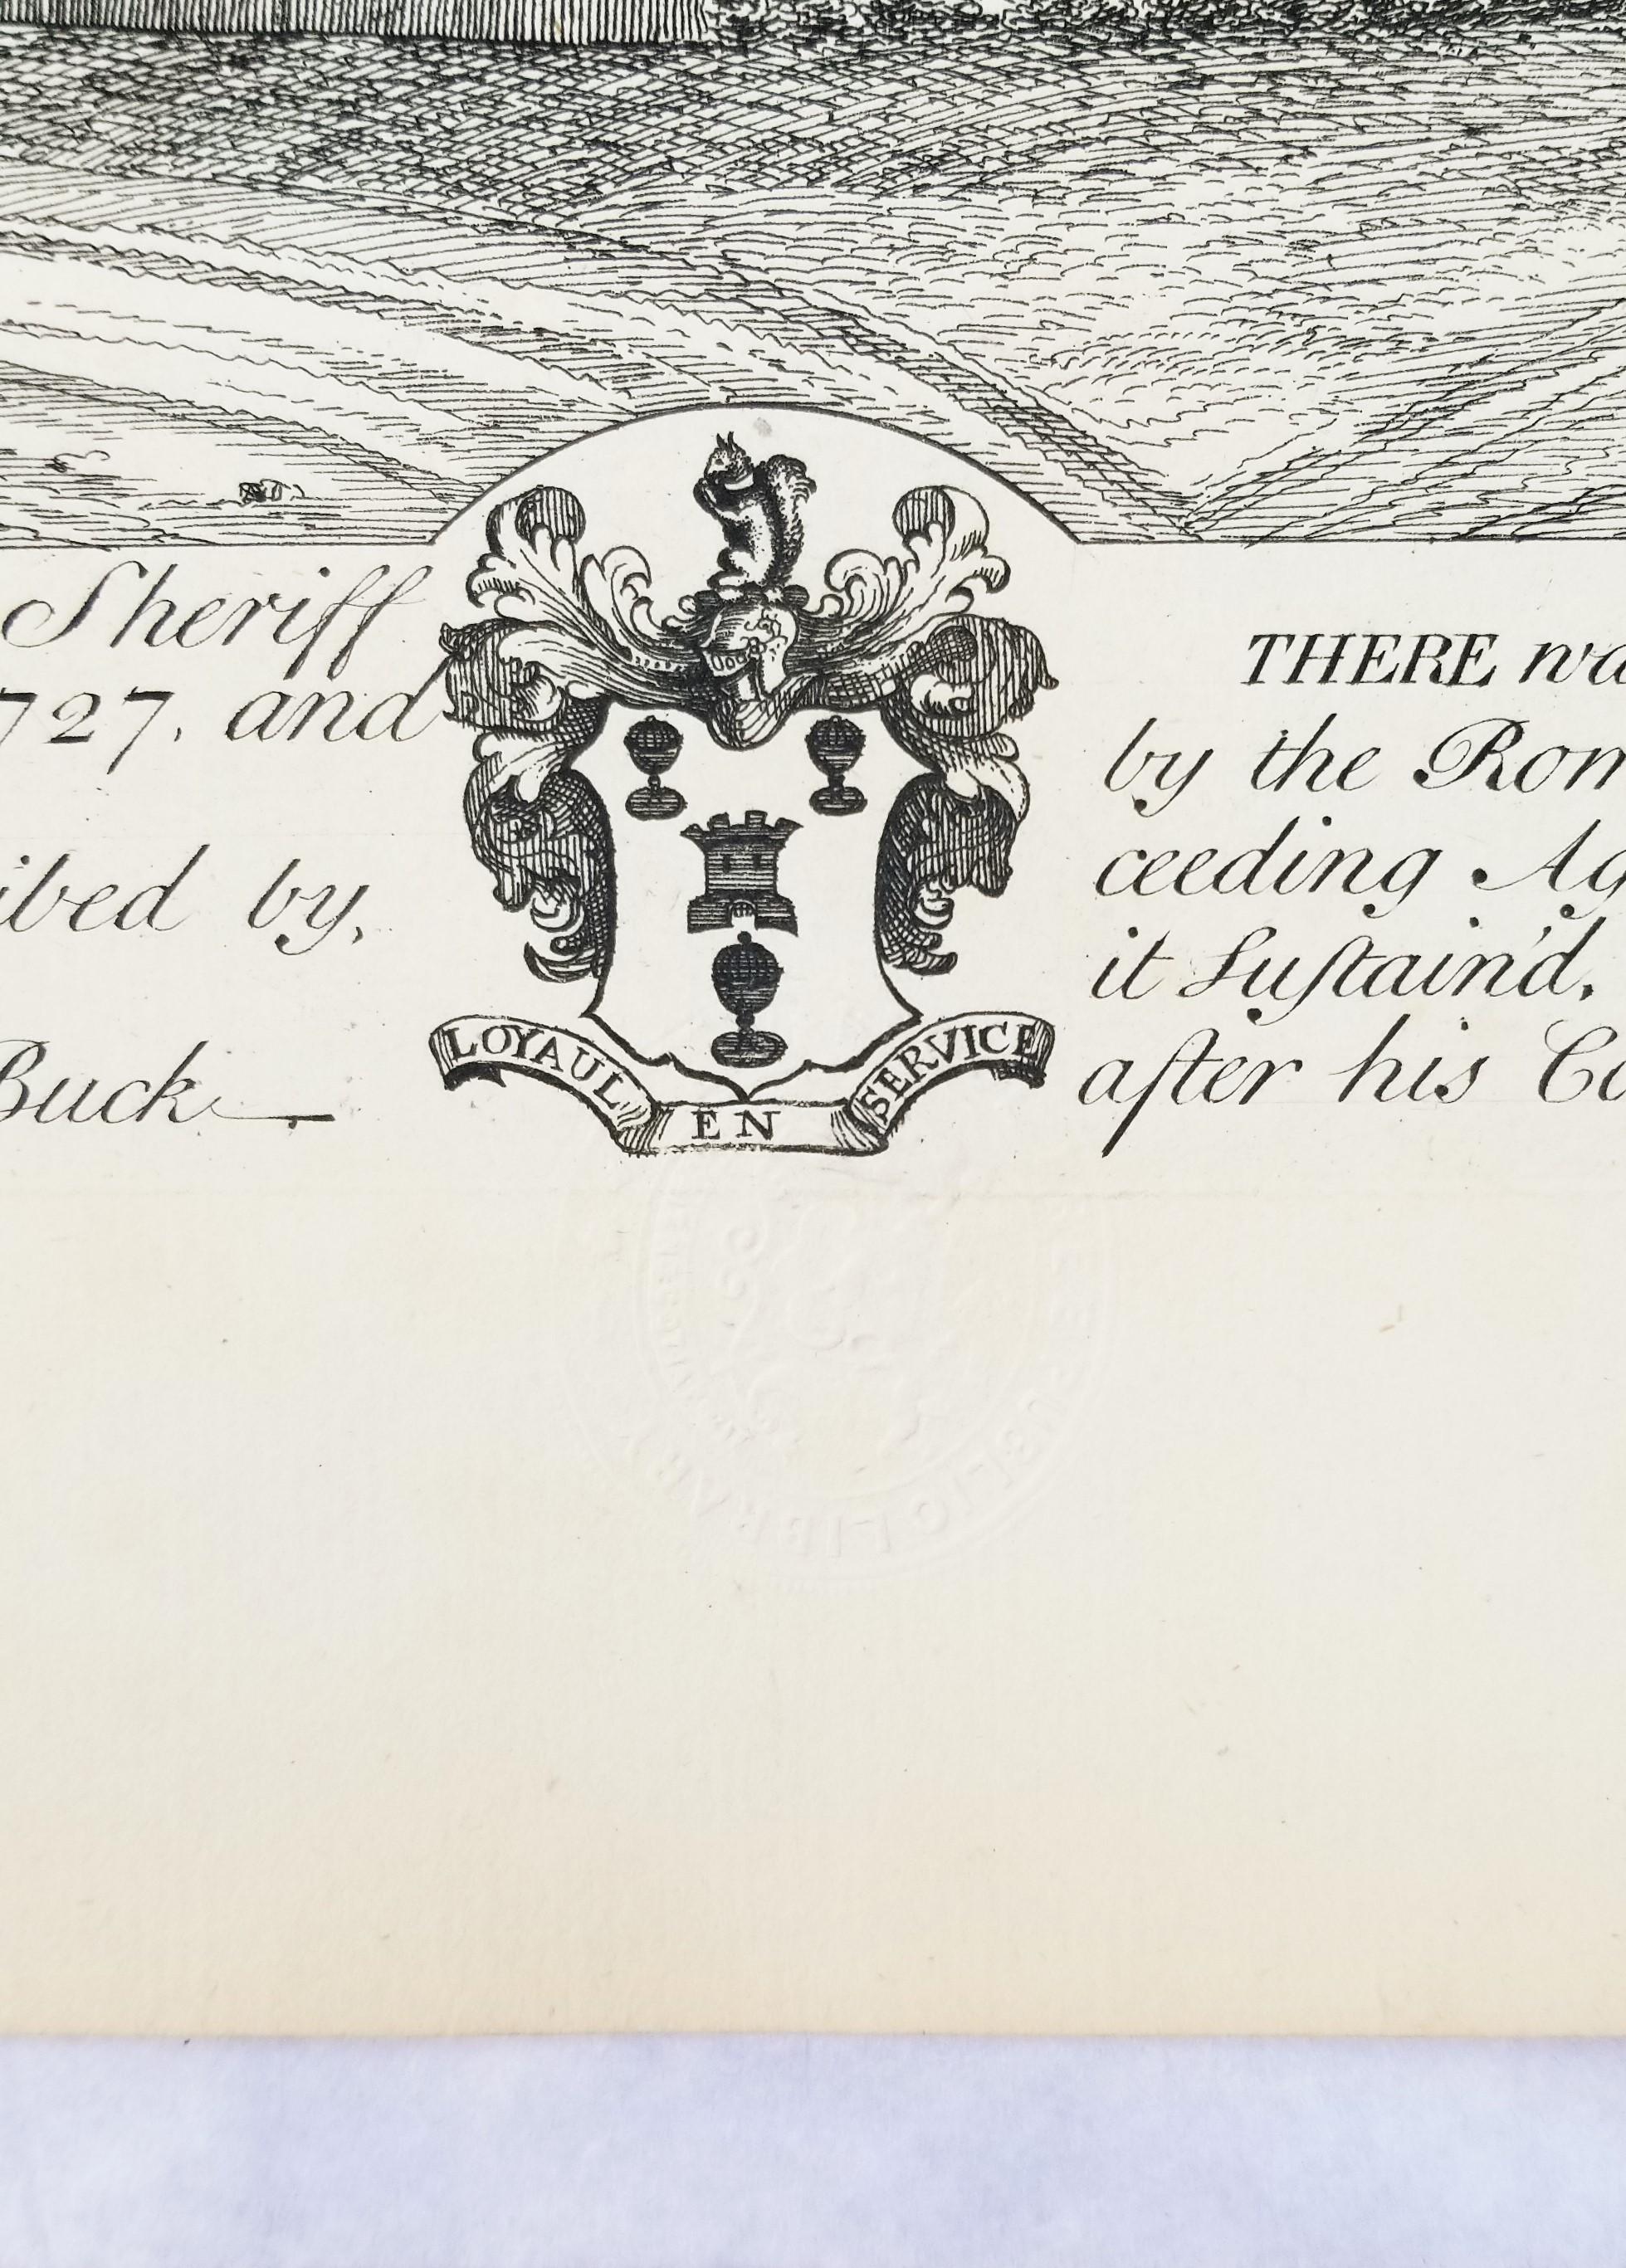 Sheriff
727. and
ibed by,
Buck
LOYAUL EN SERVICE
THERE wa
by the Rom
ceeding Ag
it Suſtain'd.
after his Co
PUBLIC LIBRARY